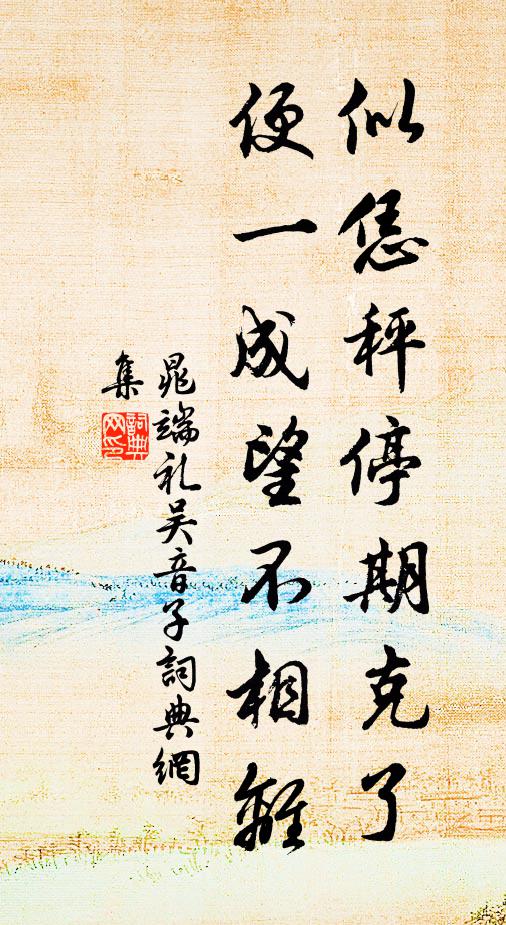 似恁秤停期克了
便一成望不相離
晁端礼吴音子詞典網
集
詞典
网印